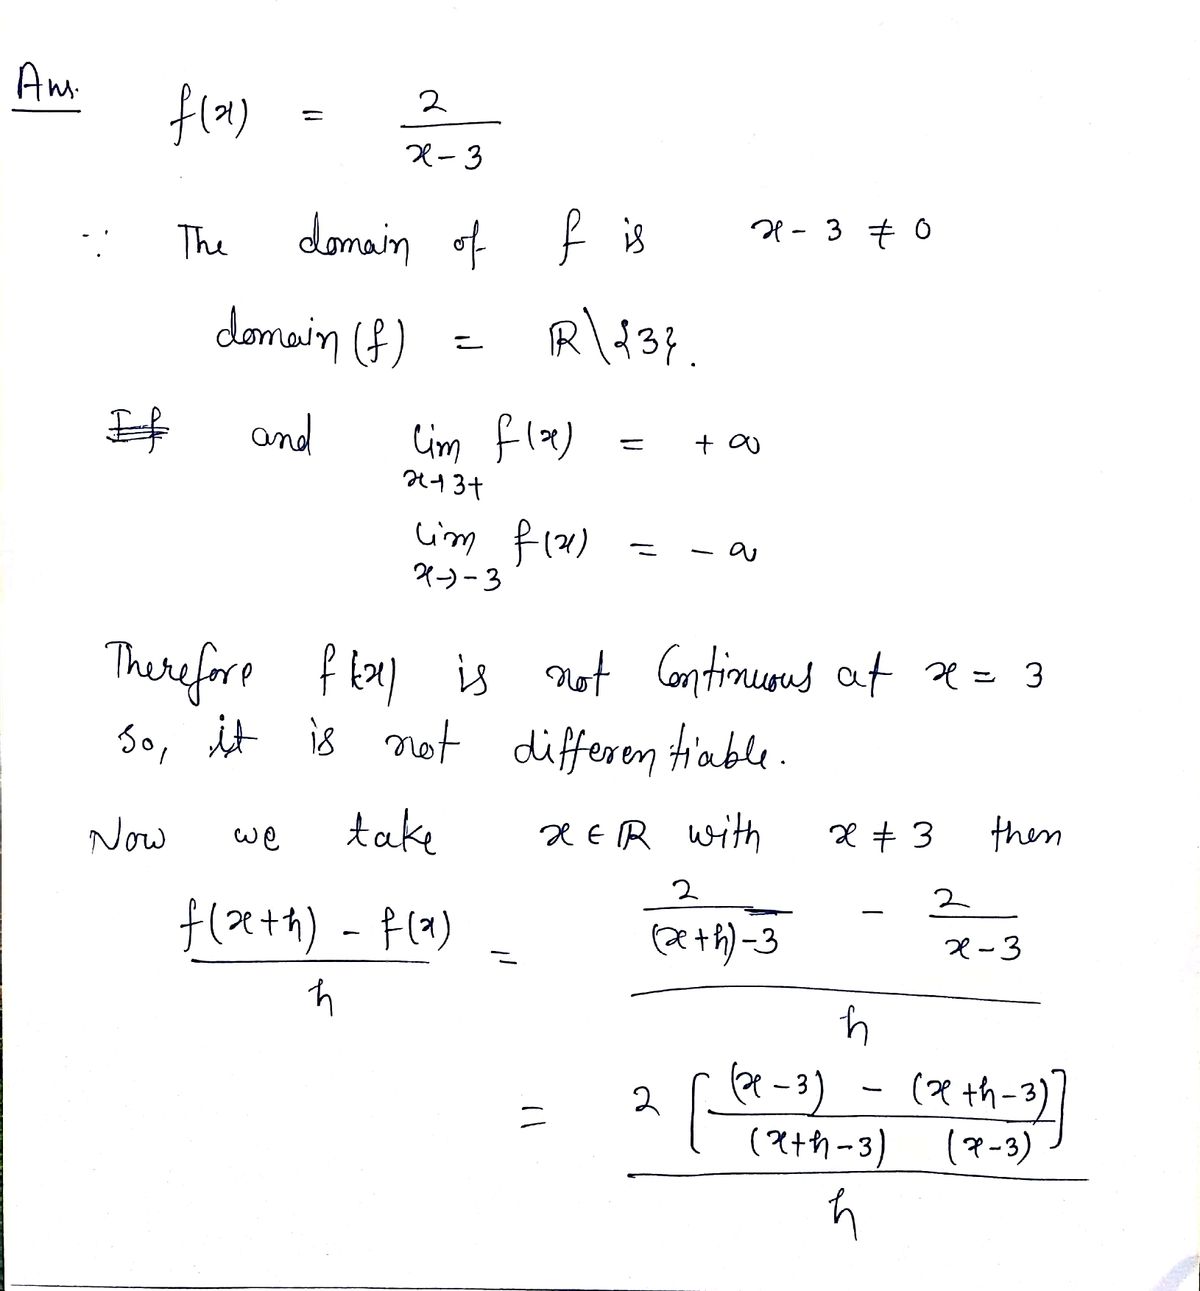 Ans. f(x) = 2 / x-3
∵ The domain of f is x-3 ≠ 0
domain (f) = ℝ\{3}.
If and lim x→3+ f(x) = +∞
lim x→-3 f(x) = -∞
Therefore f(x) is not Continuous at x = 3
so, it is not differentiable.
Now we take x ∈ ℝ with x ≠ 3 then
f(x+h) - f(x) / h = 2 / (x+h)-3 - 2 / x-3 / h
= 2 [ (x-3) - (x+h-3) / (x+h-3) (x-3) ] / h